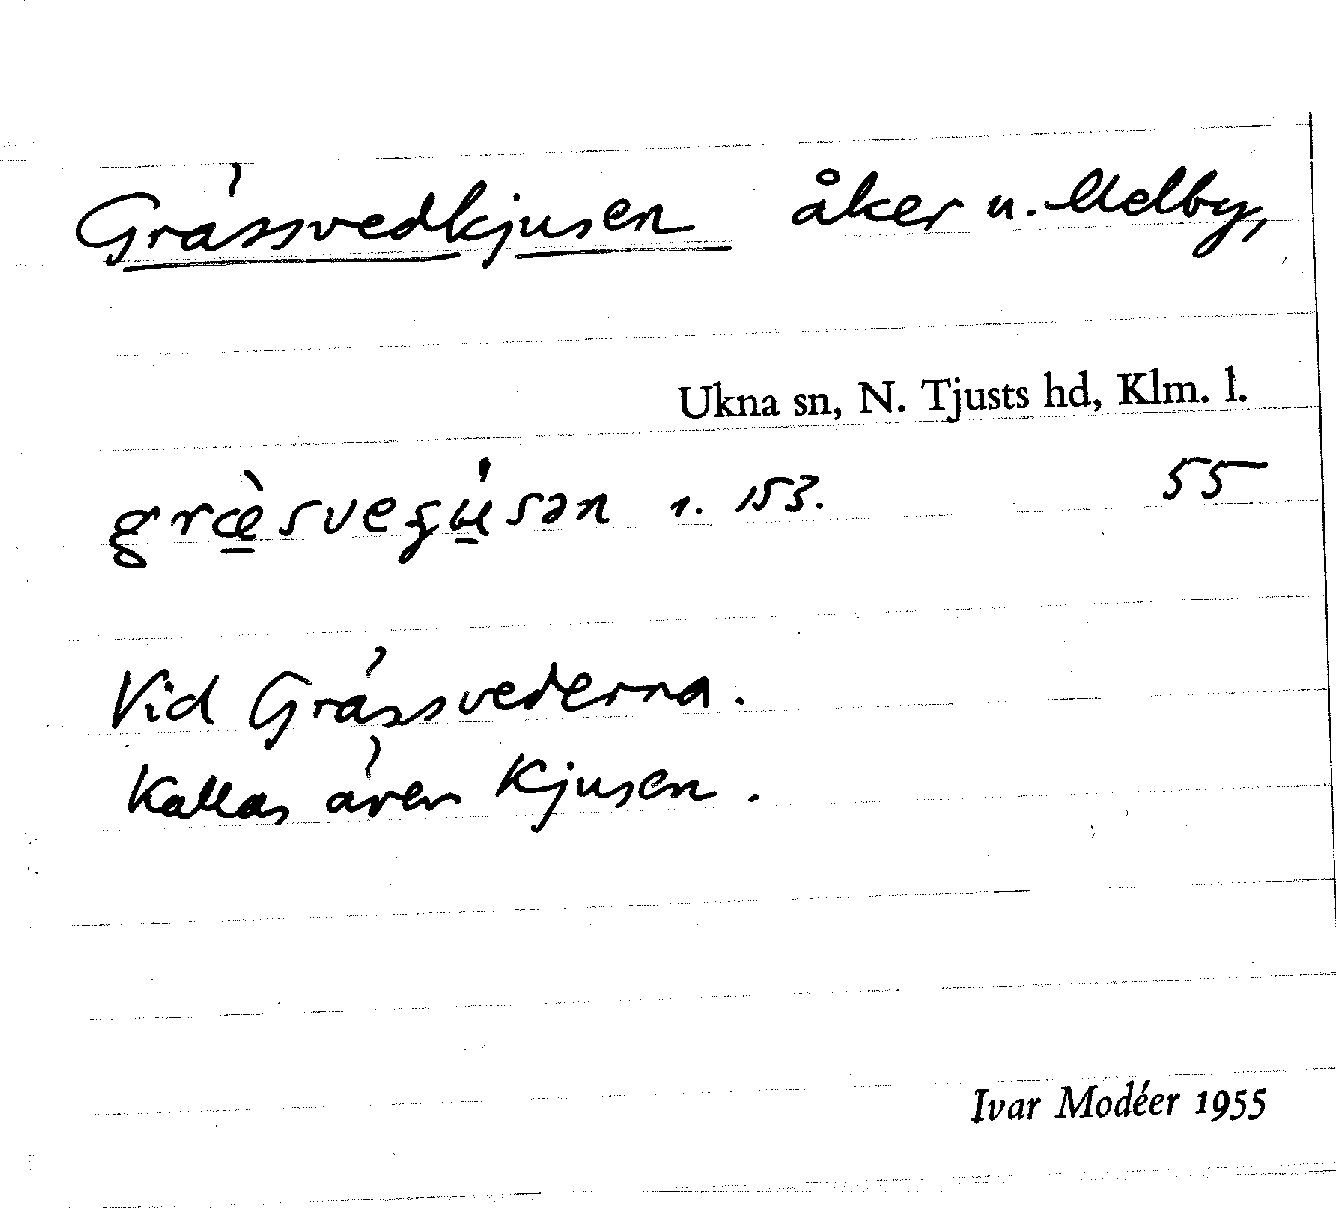 Grässvedkjusen åker u. Melby,
Ukna sn, N. Tjusts hd, Klm. l.
græ̀svegʉ́sən 1. 153. 55
Vid Grässvederna.
Kallas även Kjusen.
Ivar Modéer 1955